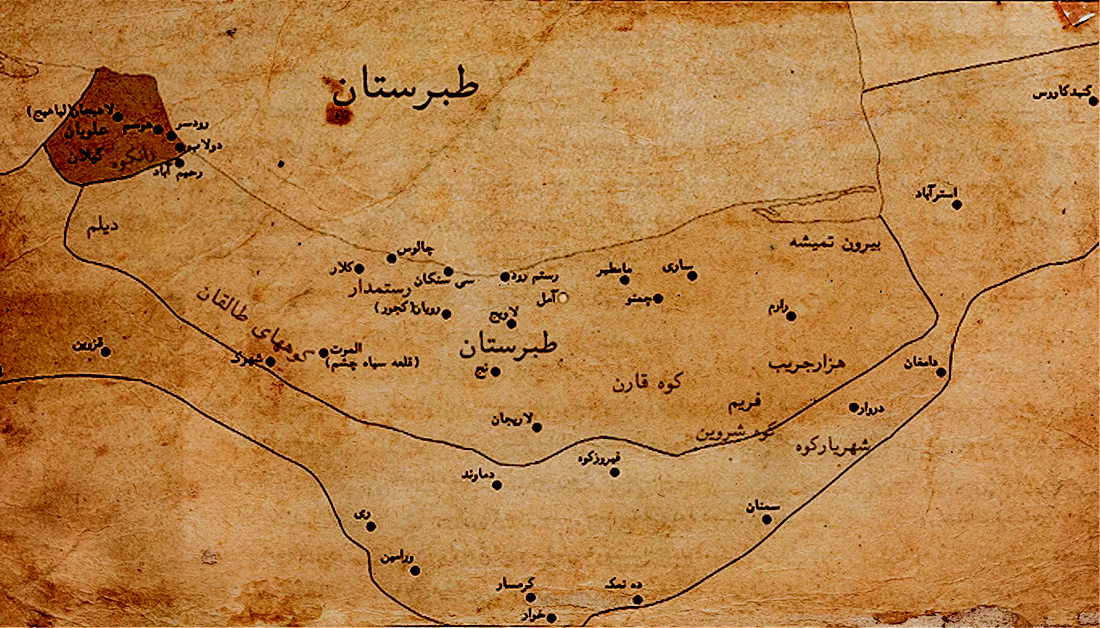 طبرستان
گنبدکاووس
لاهیجان(لیاهیج)
هوسم
رودسر
علویان
گیلان
رانکوه
رحیم آباد
دیلم
استرآباد
بیرون تمیشه
چالوس
کلار
سی سنگان
رستم رود
مامطیر
ساری
رستمدار
آمل
چمنو
رویان(کجور)
لاویج
طبرستان
کوههای طالقان
قزوین
شهرک
الموت
(قلعه سیاه چشم)
هزارجریب
دامغان
کوه قارن
فریم
کوه شروین
شهریارکوه
لاریجان
دماوند
فیروزکوه
سمنان
ری
ورامین
گرمسار
خوار
ده نمک